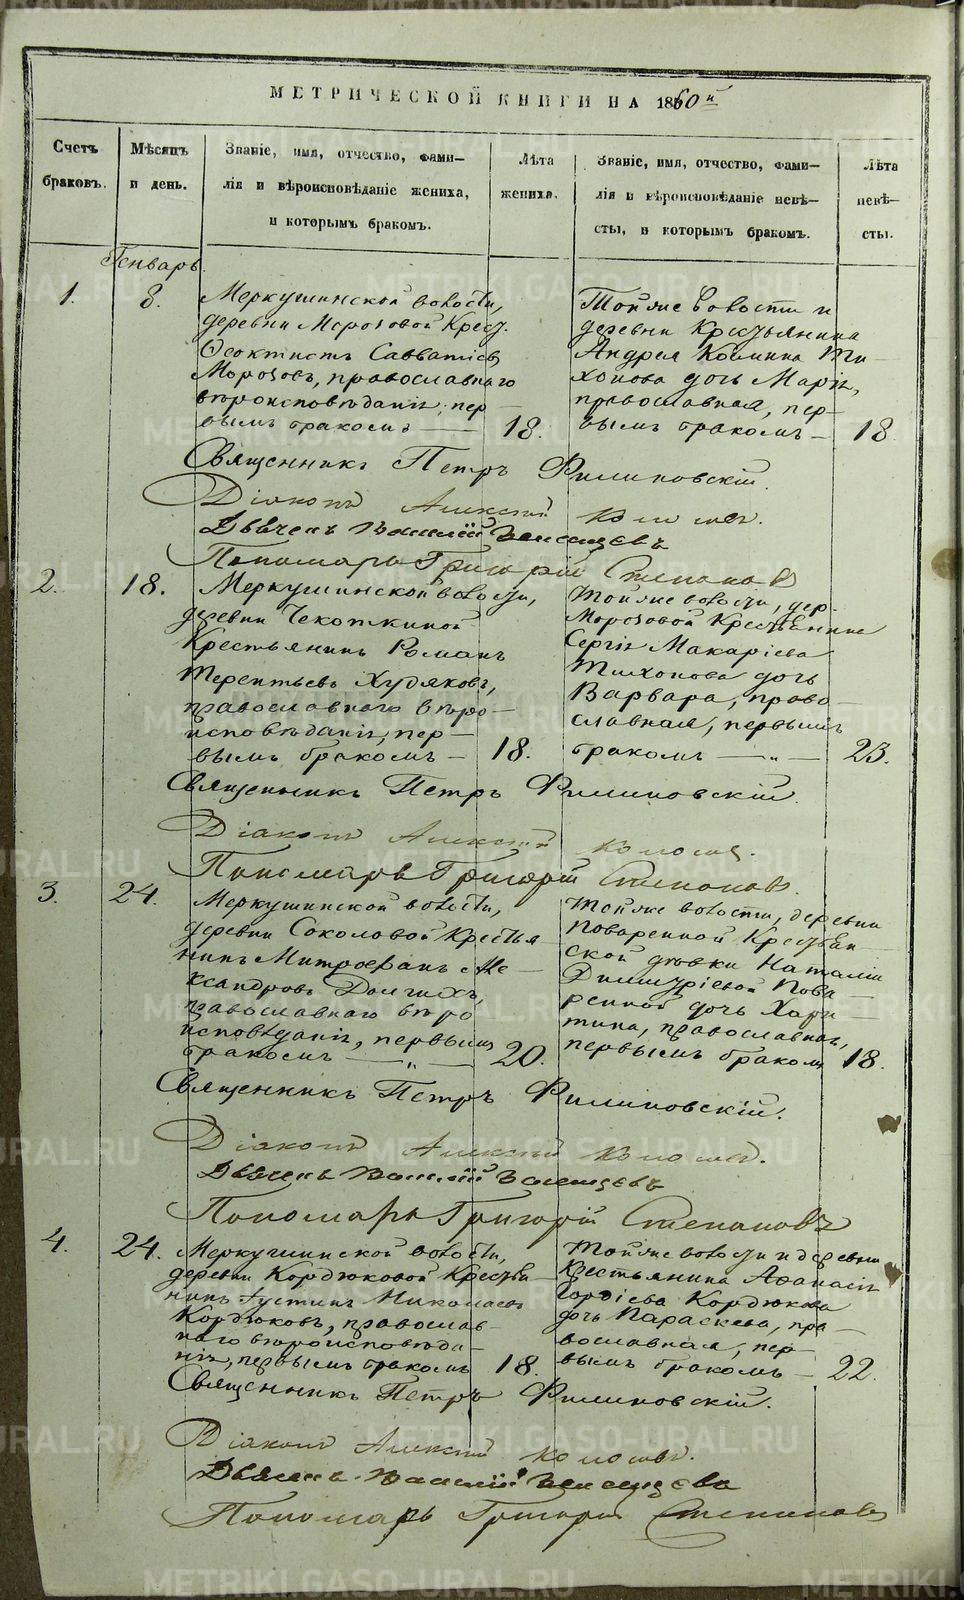 МЕТРИЧЕСКОЙ КНИГИ НА 1860й
Счетъ браковъ.
Мѣсяцъ и день.
Званіе, имя, отчество, фами-
лія и вѣроисповѣданіе жениха,
и которымъ бракомъ.
Лѣта жениха.
Званіе, имя, отчество, фами-
лія и вѣроисповѣданіе невѣ-
сты, и которымъ бракомъ.
Лѣта невѣ-
сты.
Генварь.
1.
8.
Меркушинской волости,
деревни Морозовой Крест.
Ѳеоктистъ Савватіевъ
Морозовъ, православнаго
вѣроисповѣданія, пер-
вымъ бракомъ
18.
Тойже волости и
деревни Крестьянина
Андрея Козмина Ти-
хонова дочь Марія,
православная, пер-
вымъ бракомъ
18.
Священникъ Петръ Филиповскій.
Діаконъ Алексій
Дьячекъ Василій
Пономарь Григорій Степановъ
2.
18.
Меркушинской волости,
деревни Чекоткиной
Крестьянинъ Романъ
Терентьевъ Худяковъ,
православнаго вѣро-
исповѣданія, пер-
вымъ бракомъ
18.
Тойже волости, дер.
Морозовой Крестьянина
Сергія Макаріева
Тихонова дочь
Варвара, право-
славная, первымъ
бракомъ — „ —
23.
Священникъ Петръ Филиповскій.
Діаконъ Алексій
Пономарь Григорій Степановъ.
3.
24.
Меркушинской волости,
деревни Соколовой Крестья-
нинъ Митрофанъ Але-
ксандровъ Долгихъ,
православнаго вѣро
исповѣданія, первымъ
бракомъ — „ —
20.
Тойже волости, деревни
Поваренной Крестьян-
ской дѣвки Наталіи
Димитріевой Пова-
ренной дочь Хари-
тина, православная,
первымъ бракомъ
18.
Священникъ Петръ Филиповскій.
Діаконъ Алексій
Дьячекъ Василій
Пономарь Григорій Степановъ
4.
24.
Меркушинской волости,
деревни Кордюковой Крестья-
нинъ Іустинъ Николаевъ
Кордюковъ, православ-
наго вѣроисповѣда-
нія, первымъ бракомъ
18.
Тойже волости и деревни
Крестьянина Аѳанасія
Гордіева Кордюкова
дочь Параскева, пра-
вославная, пер-
вымъ бракомъ
22.
Священникъ Петръ Филиповскій.
Діаконъ Алексій
Дьячекъ Василій
Пономарь Григорій Степановъ
METRIKI.GASO-URAL.RU